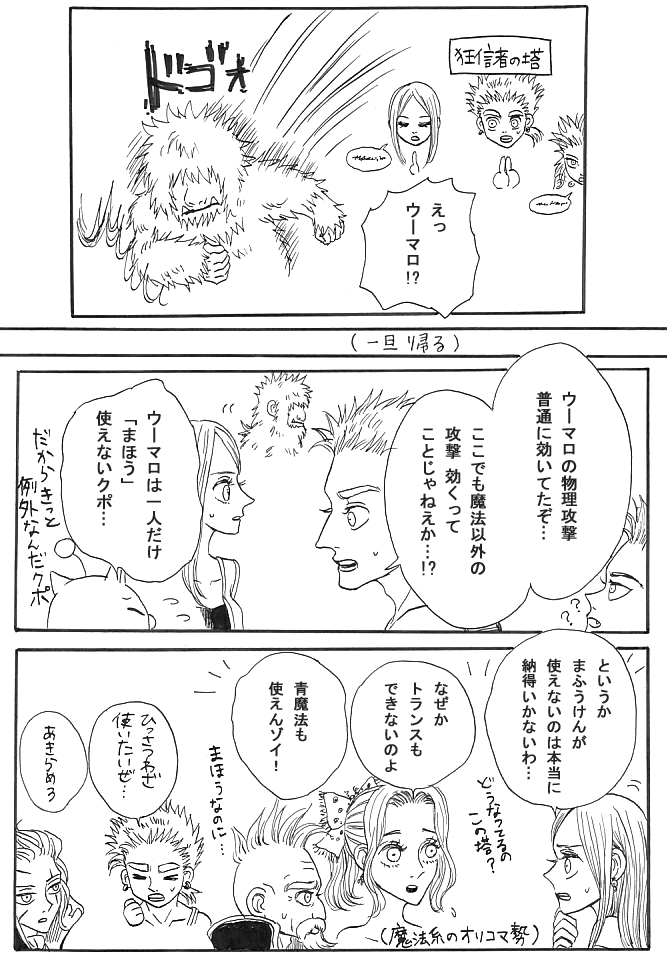 狂信者の塔
ドゴォ
えっ
ウーマロ!?
(一旦帰る)
ウーマロの物理攻撃
普通に効いてたぞ…
ここでも魔法以外の
攻撃 効くって
ことじゃねえか…!?
??
ウーマロは一人だけ
「まほう」
使えないクポ…
だからきっと
例外なんだクポ
というか
まふうけんが
使えないのは本当に
納得いかないわ…
どうなってるの
この塔?
なぜか
トランスも
できないのよ
青魔法も
使えんゾイ!
まほうなのに…
(魔法系のオリコマ勢)
ひっさつわざ
使いたいぜ…
あきらめろ